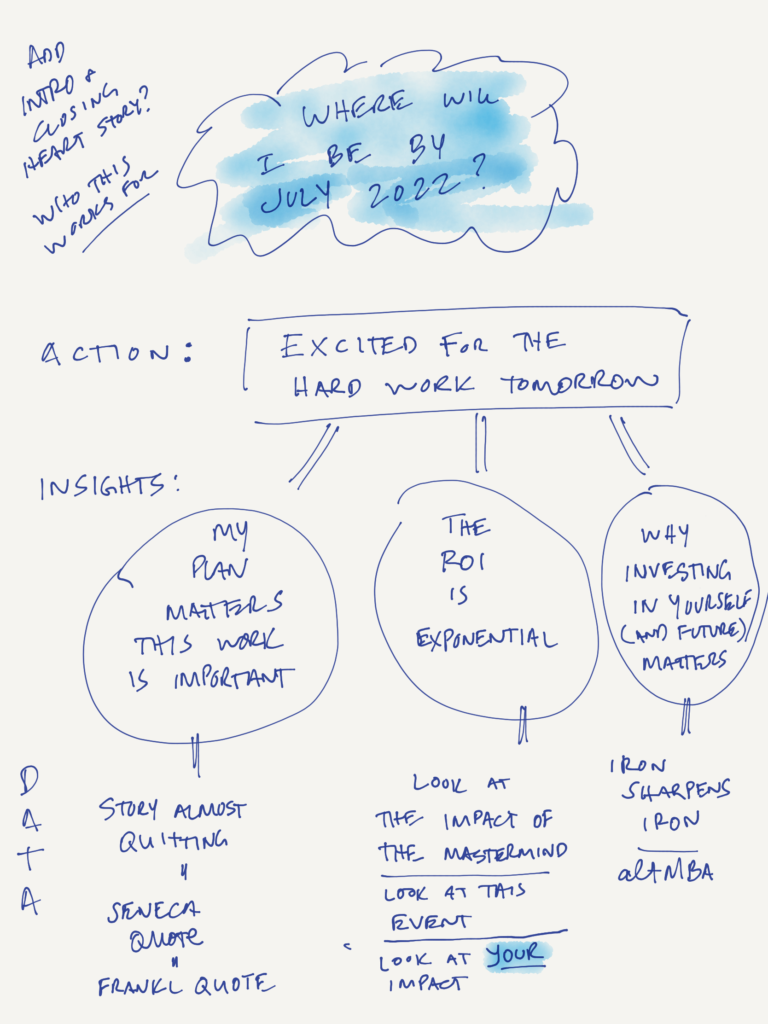 ADD
INTRO &
CLOSING
HEART STORY?
WHO THIS
WORKS FOR
WHERE WILL
I BE BY
JULY 2022?
ACTION:
EXCITED FOR THE
HARD WORK TOMORROW
INSIGHTS:
MY
PLAN
MATTERS
THIS WORK
IS IMPORTANT
THE
ROI
IS
EXPONENTIAL
WHY
INVESTING
IN YOURSELF
(AND FUTURE)
MATTERS
DATA
STORY ALMOST
QUITTING
"
SENECA
QUOTE
"
FRANKL QUOTE
LOOK AT
THE IMPACT OF
THE MASTERMIND
LOOK AT THIS
EVENT
LOOK AT YOUR
IMPACT
IRON
SHARPENS
IRON
altMBA